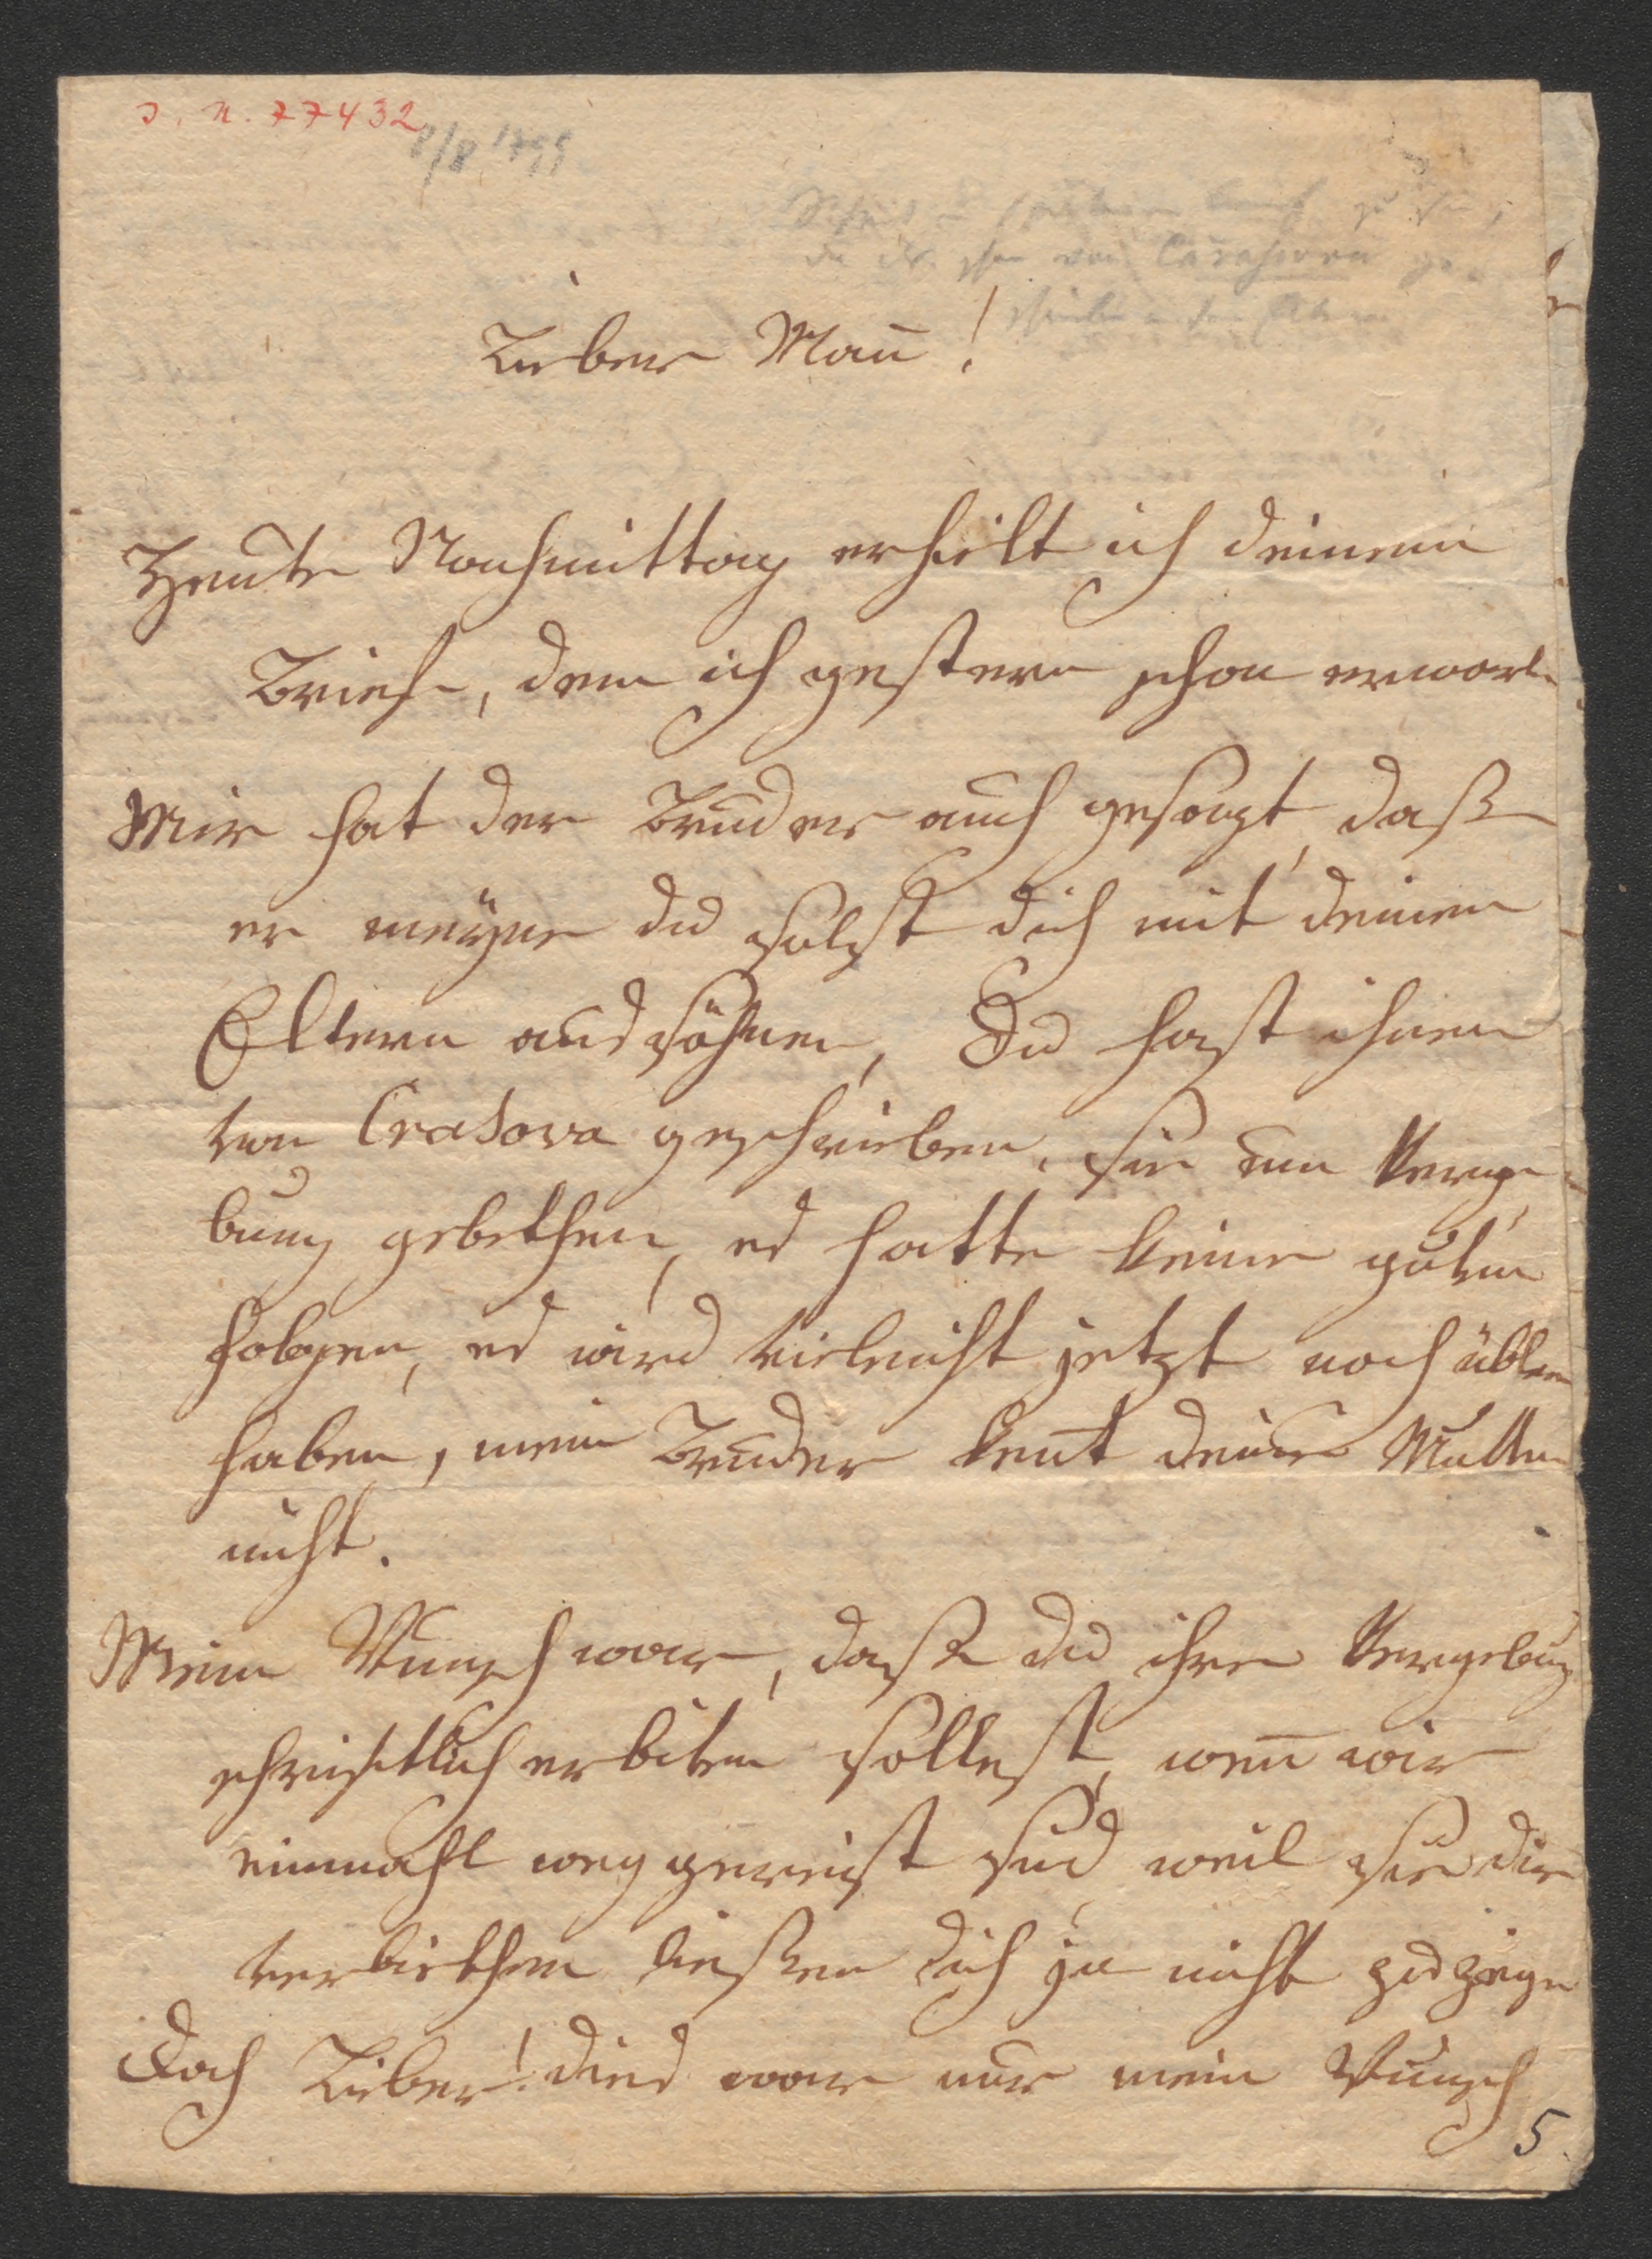 J. N. 77432
8/8 1799
Lieber Man̄!
Heute Nachmittag erhielt ich deinen
Brief, den ich gestern schon erwart.
Mir hat der Bruder auch gesagt, daß
er meyne du solst dich mit deinen
Eltern aussöhnen, Du hast ihnen
von Crasova geschrieben, sie um Verge
bung gebethen, es hatte keine guten
folgen, es wird vieleicht jetzt noch üblere
haben, mein Bruder kent̄ deine Mutter
nicht.
Mein Wunsch war, daß du ihre Vergebung
schriftlich erbiten sollest, wen̄ wir
einmahl weg gereist sind weil sie dir
verbiethen ließen dich ja nicht zu zeigen
Doch Lieber! dies war nur mein Wunsch
5